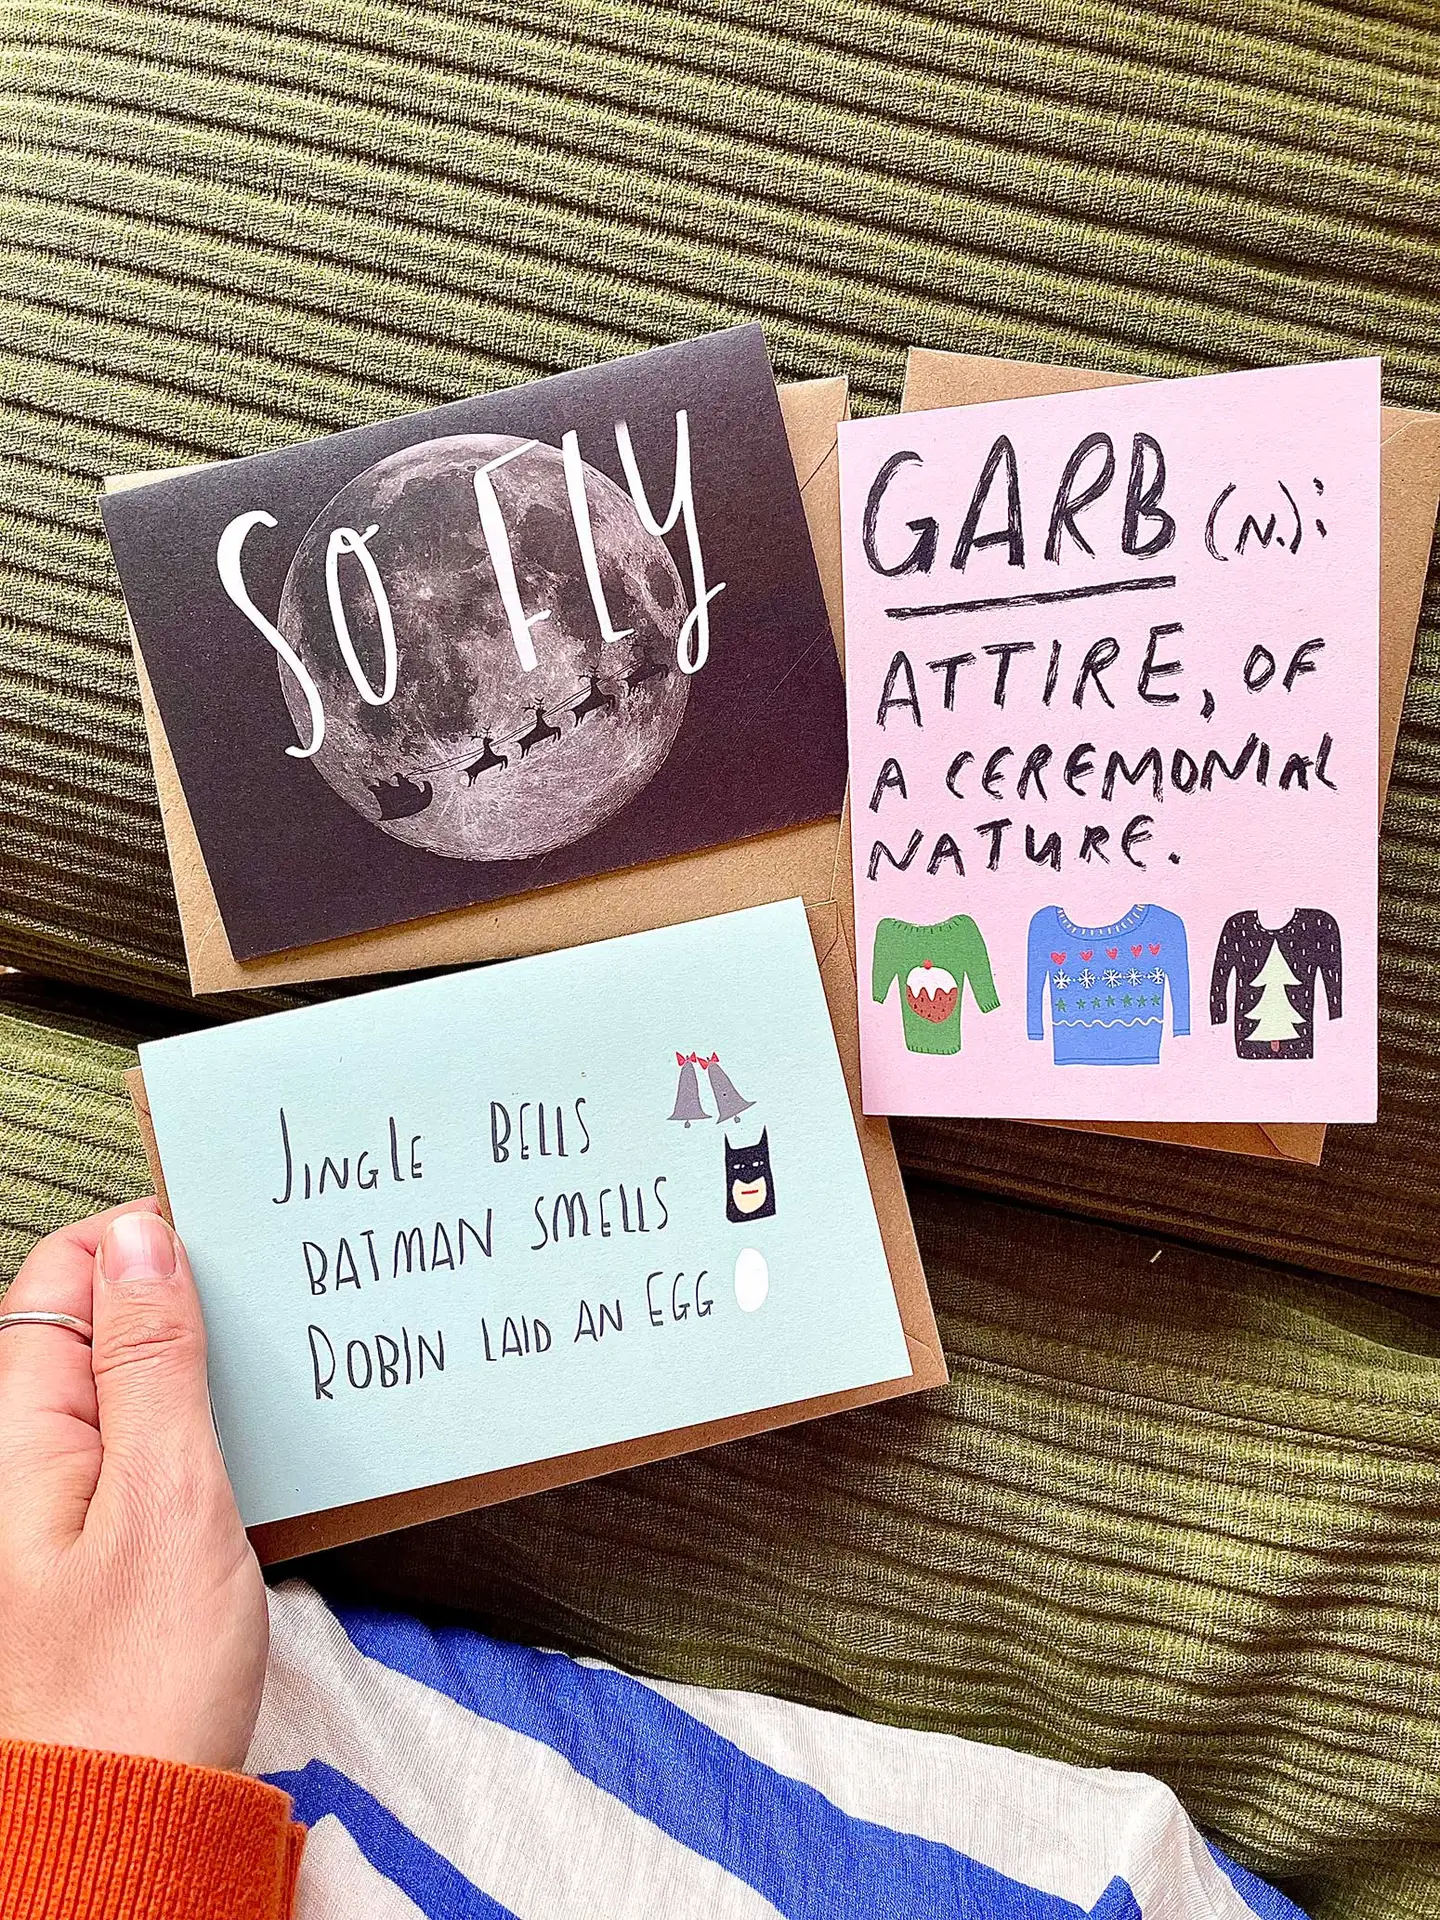 SO FLY
GARB (N.):
ATTIRE, OF
A CEREMONIAL
NATURE.
JINGLE BELLS
BATMAN SMELLS
ROBIN LAID AN EGG